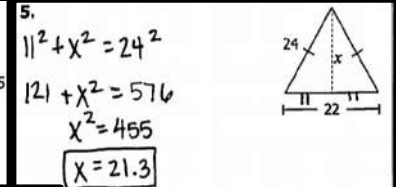 5.
11² + x² = 24²
121 + x² = 576
x² = 455
x = 21.3
24
x
22
5